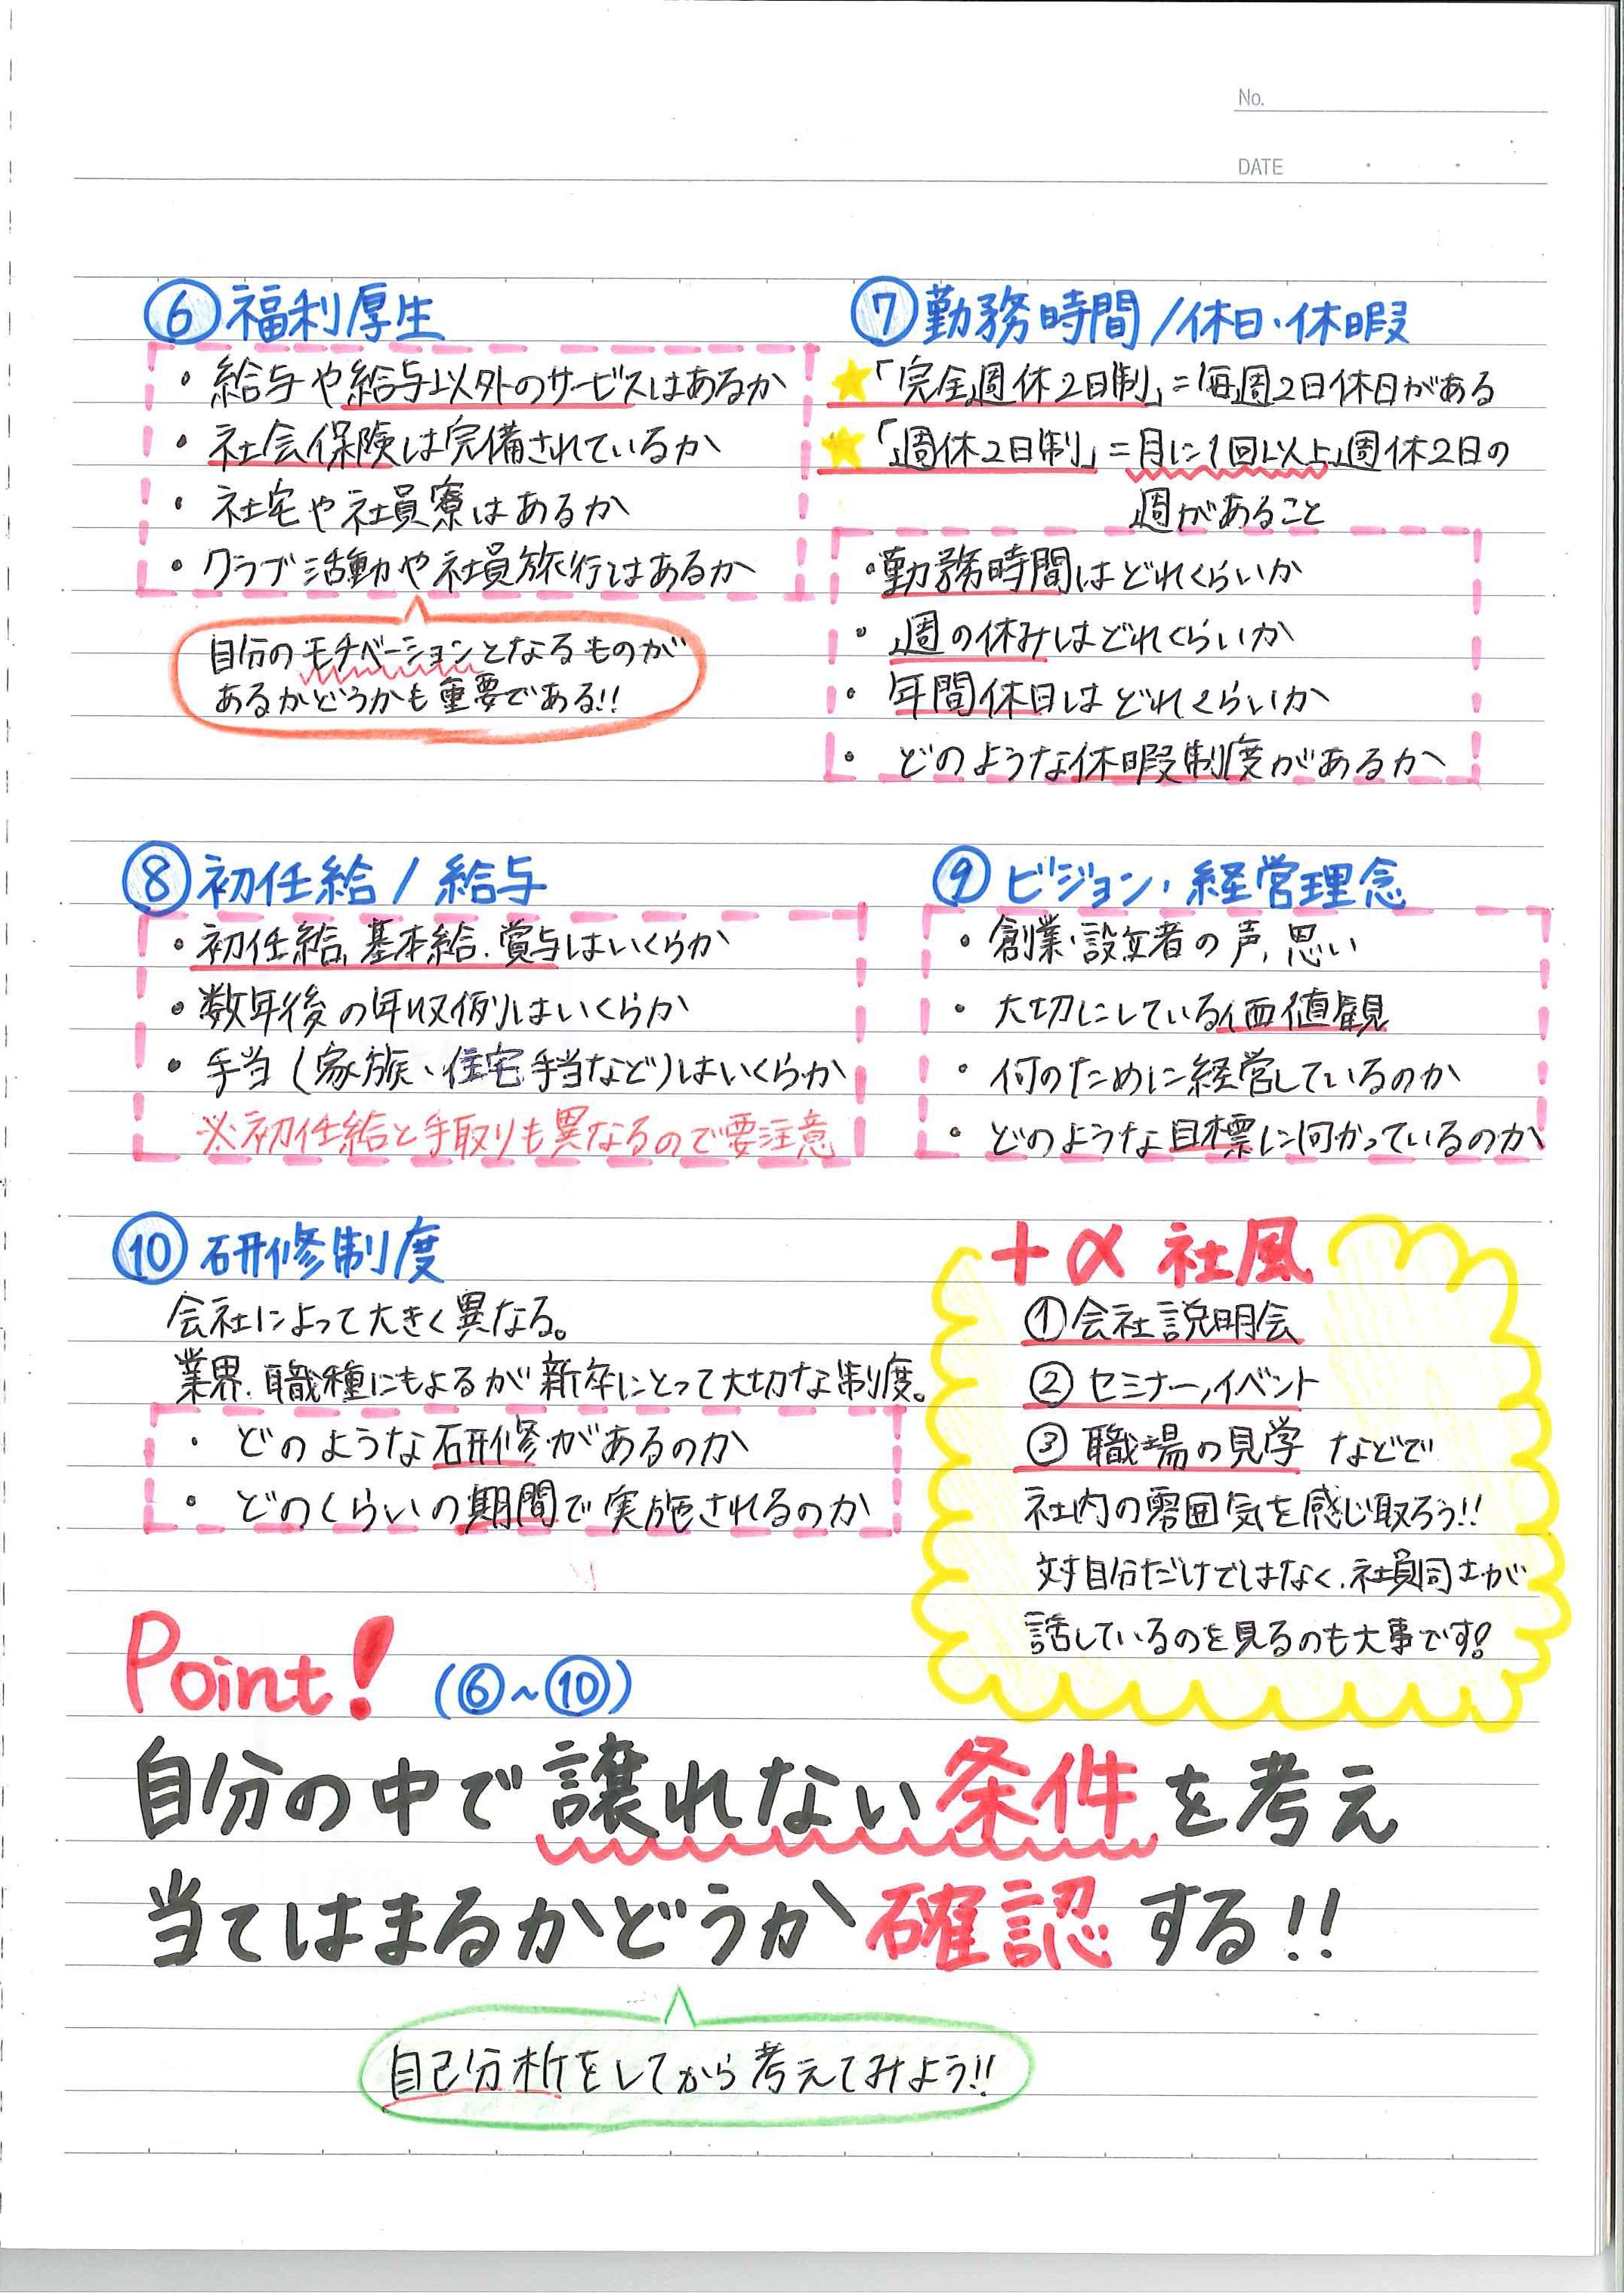 No.
DATE
⑥福利厚生
・給与や給与以外のサービスはあるか
・社会保険は完備されているか
・社宅や社員寮はあるか
・クラブ活動や社員旅行はあるか
自分のモチベーションとなるものが
あるかどうかも重要である!!
⑦勤務時間/休日・休暇
★「完全週休2日制」=毎週2日休日がある
★「週休2日制」=月に1回以上週休2日の
週があること
・勤務時間はどれくらいか
・週の休みはどれくらいか
・年間休日はどれくらいか
・どのような休暇制度があるか
⑧初任給/給与
・初任給、基本給、賞与はいくらか
・数年後の年収例はいくらか
・手当(家族、住宅手当など)はいくらか
※初任給と手取りも異なるので要注意
⑨ビジョン・経営理念
・創業・設立者の声、思い
・大切にしている価値観
・何のために経営しているのか
・どのような目標に向かっているのか
⑩研修制度
会社によって大きく異なる。
業界、職種にもよるが新卒にとって大切な制度。
・どのような研修があるのか
・どのくらいの期間で実施されるのか
+α 社風
①会社説明会
②セミナー、イベント
③職場の見学 などで
社内の雰囲気を感じ取ろう!!
対自分だけではなく、社員同士が
話しているのを見るのも大事です!
Point! (⑥~⑩)
自分の中で譲れない条件を考え
当てはまるかどうか確認する!!
自己分析をしてから考えてみよう!!